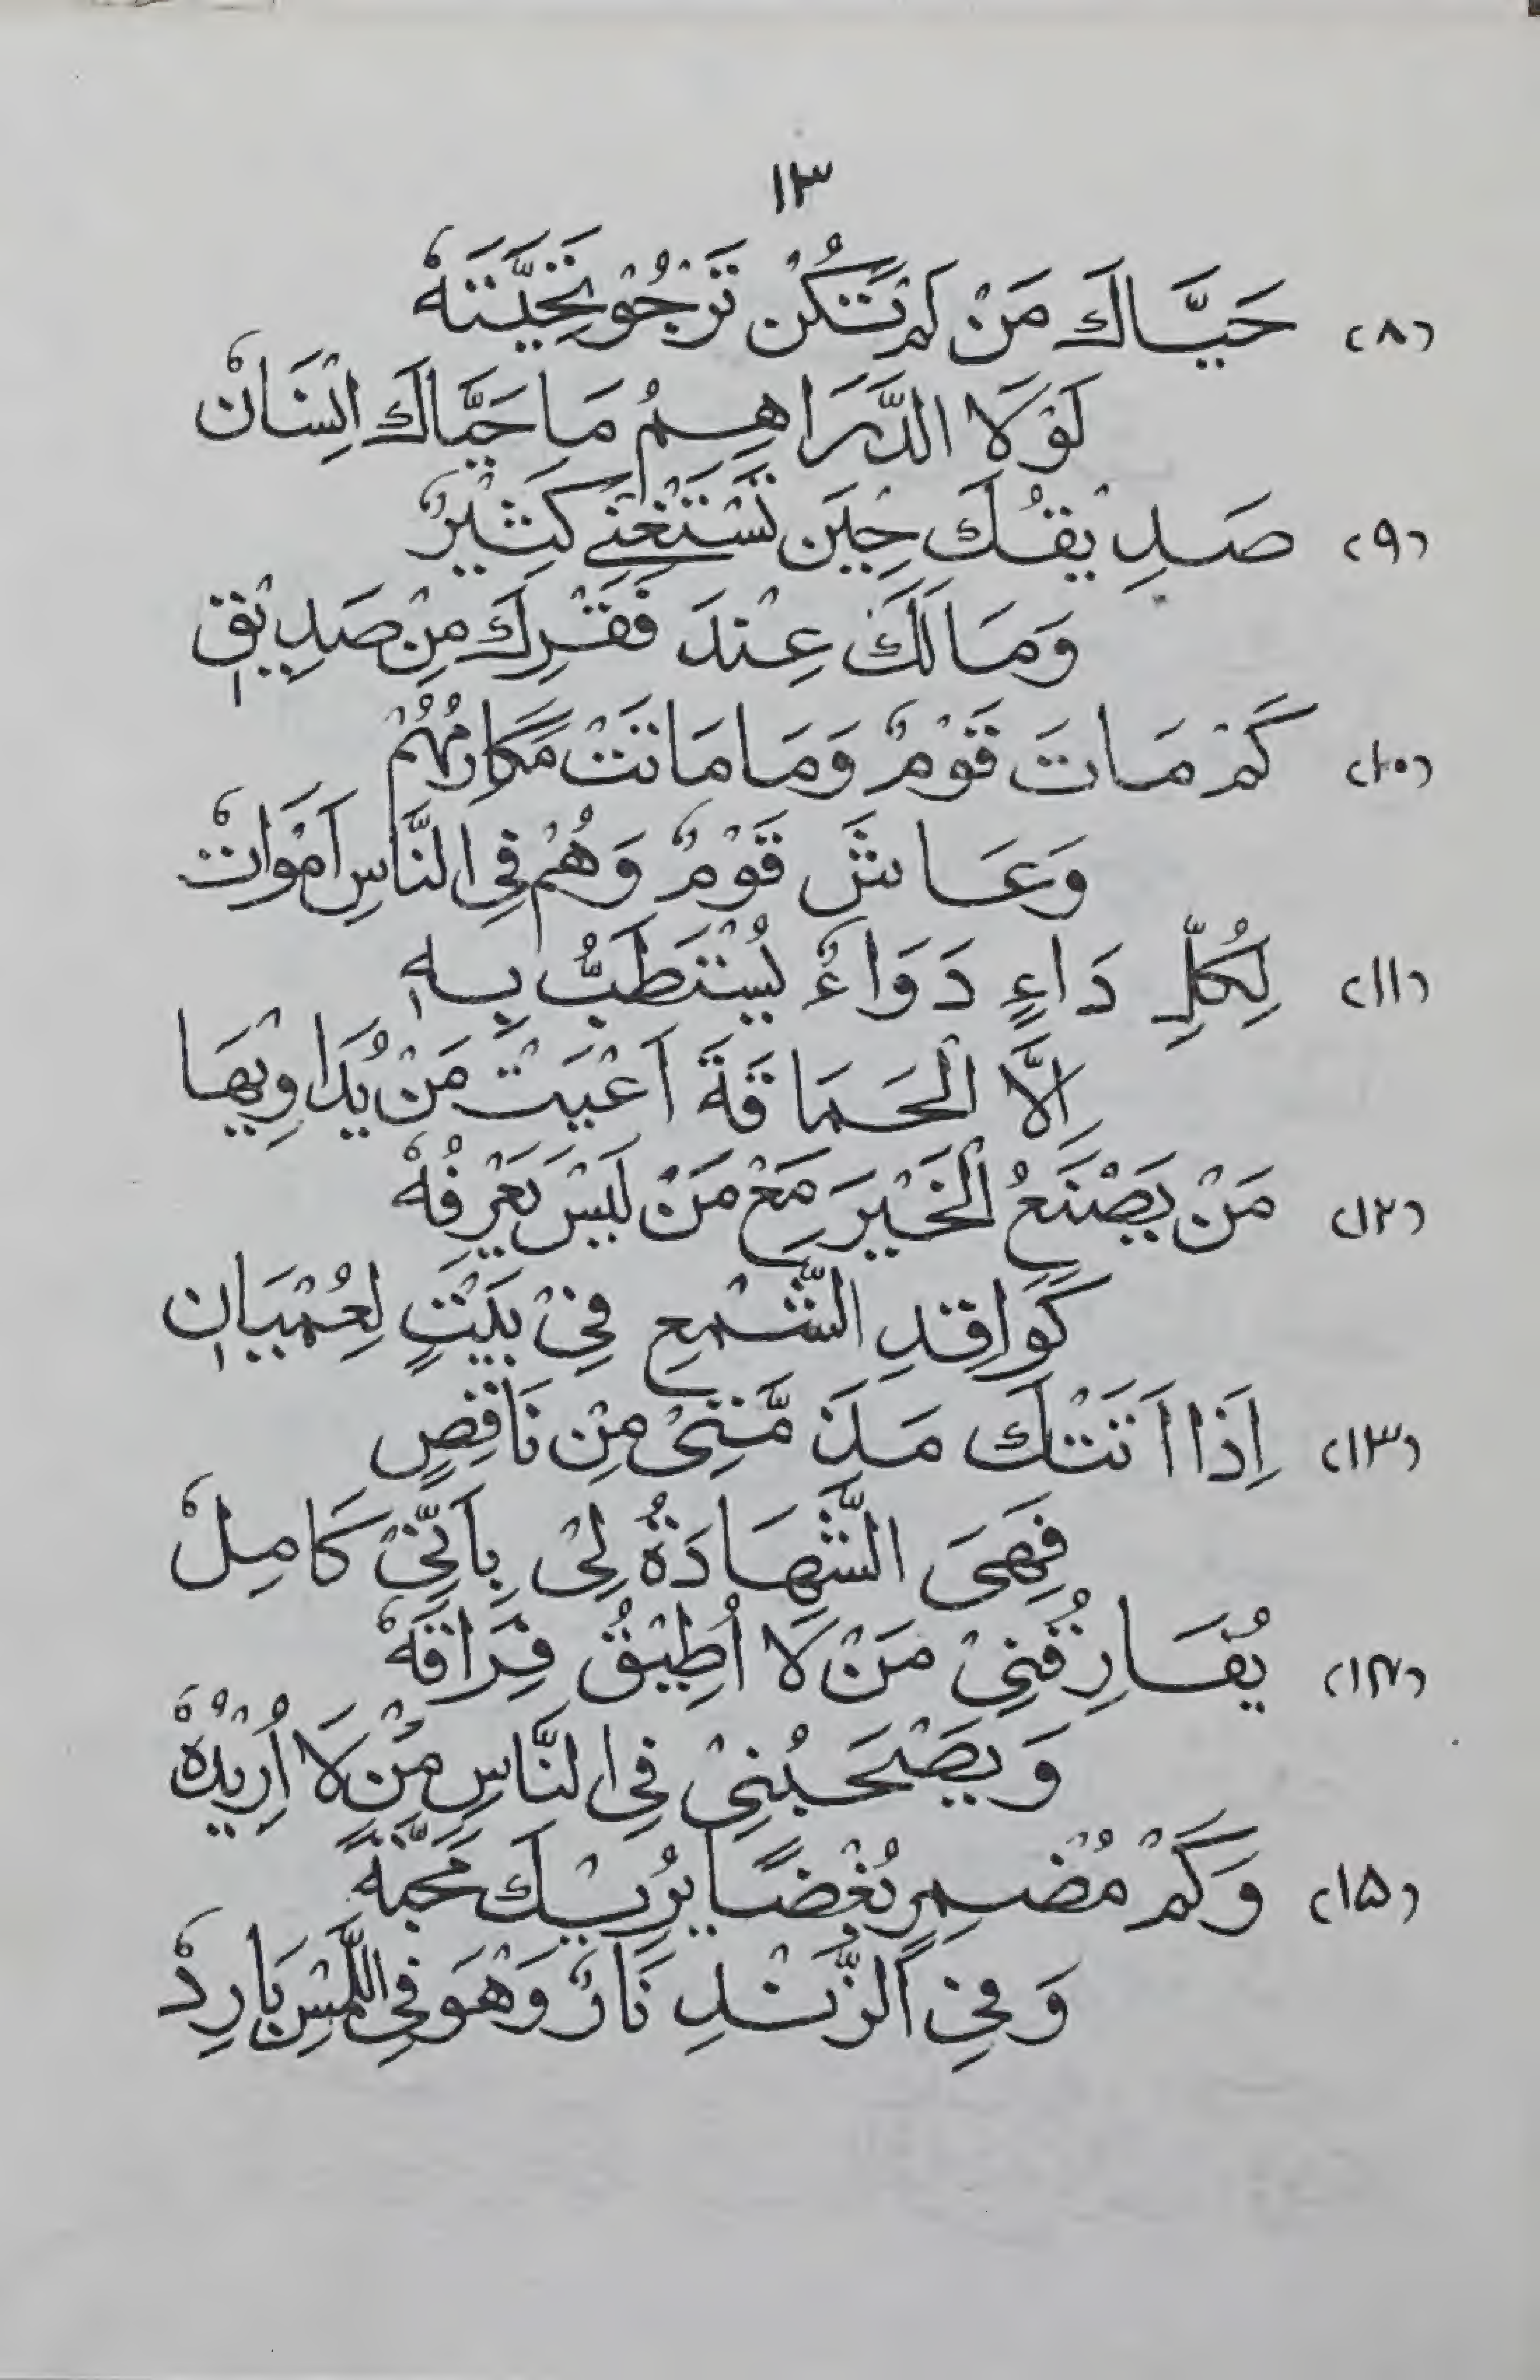 ١٣
(٨) حَيَّاكَ مَنْ لَمْ تَكُنْ تَرْجُوْ تَحِيَّتَهٗ
لَوْلَا الدَّرَاهِمُ مَا حَيَّاكَ اِنْسَانٗ
(٩) صَدِيْقُكَ حِيْنَ تَسْتَغْنِيْ كَثِيْرٌ
وَمَا لَكَ عِنْدَ فَقْرِكَ مِنْ صَدِيْقٖ
(١٠) كَمْ مَاتَ قَوْمٌ وَمَا مَاتَتْ مَكَارِمُهُمْ
وَعَاشَ قَوْمٌ وَهُمْ فِي النَّاسِ اَمْوَاتٗ
(١١) لِكُلِّ دَاءٍ دَوَاءٌ يُسْتَطَبُّ بِهٖ
اِلَّا الْحَمَاقَةَ اَعْيَتْ مَنْ يُدَاوِيْهَا
(١٢) مَنْ يَصْنَعُ الْخَيْرَ مَعْ مَنْ لَيْسَ يَعْرِفُهٗ
كَوَاقِدِ الشَّمْعِ فِيْ بَيْتٍ لِعُمْيَانٖ
(١٣) اِذَا اَتَتْكَ مَذَمَّتِىْ مِنْ نَاقِصٍ
فَهِىَ الشَّهَادَةُ لِىْ بِاَنِّىْ كَامِلٗ
(١٤) يُفَارِقُنِيْ مَنْ لَا اُطِيْقُ فِرَاقَهٗ
وَيَصْحَبُنِيْ فِي النَّاسِ مَنْ لَا اُرِيْدُهٗ
(١٥) وَكَمْ مُضْمِرٍ بُغْضًا يُرِيْكَ مَحَبَّةً
وَفِي الزَّنْدِ نَارٌ وَهْوَ فِي اللَّمْسِ بَارِدٗ